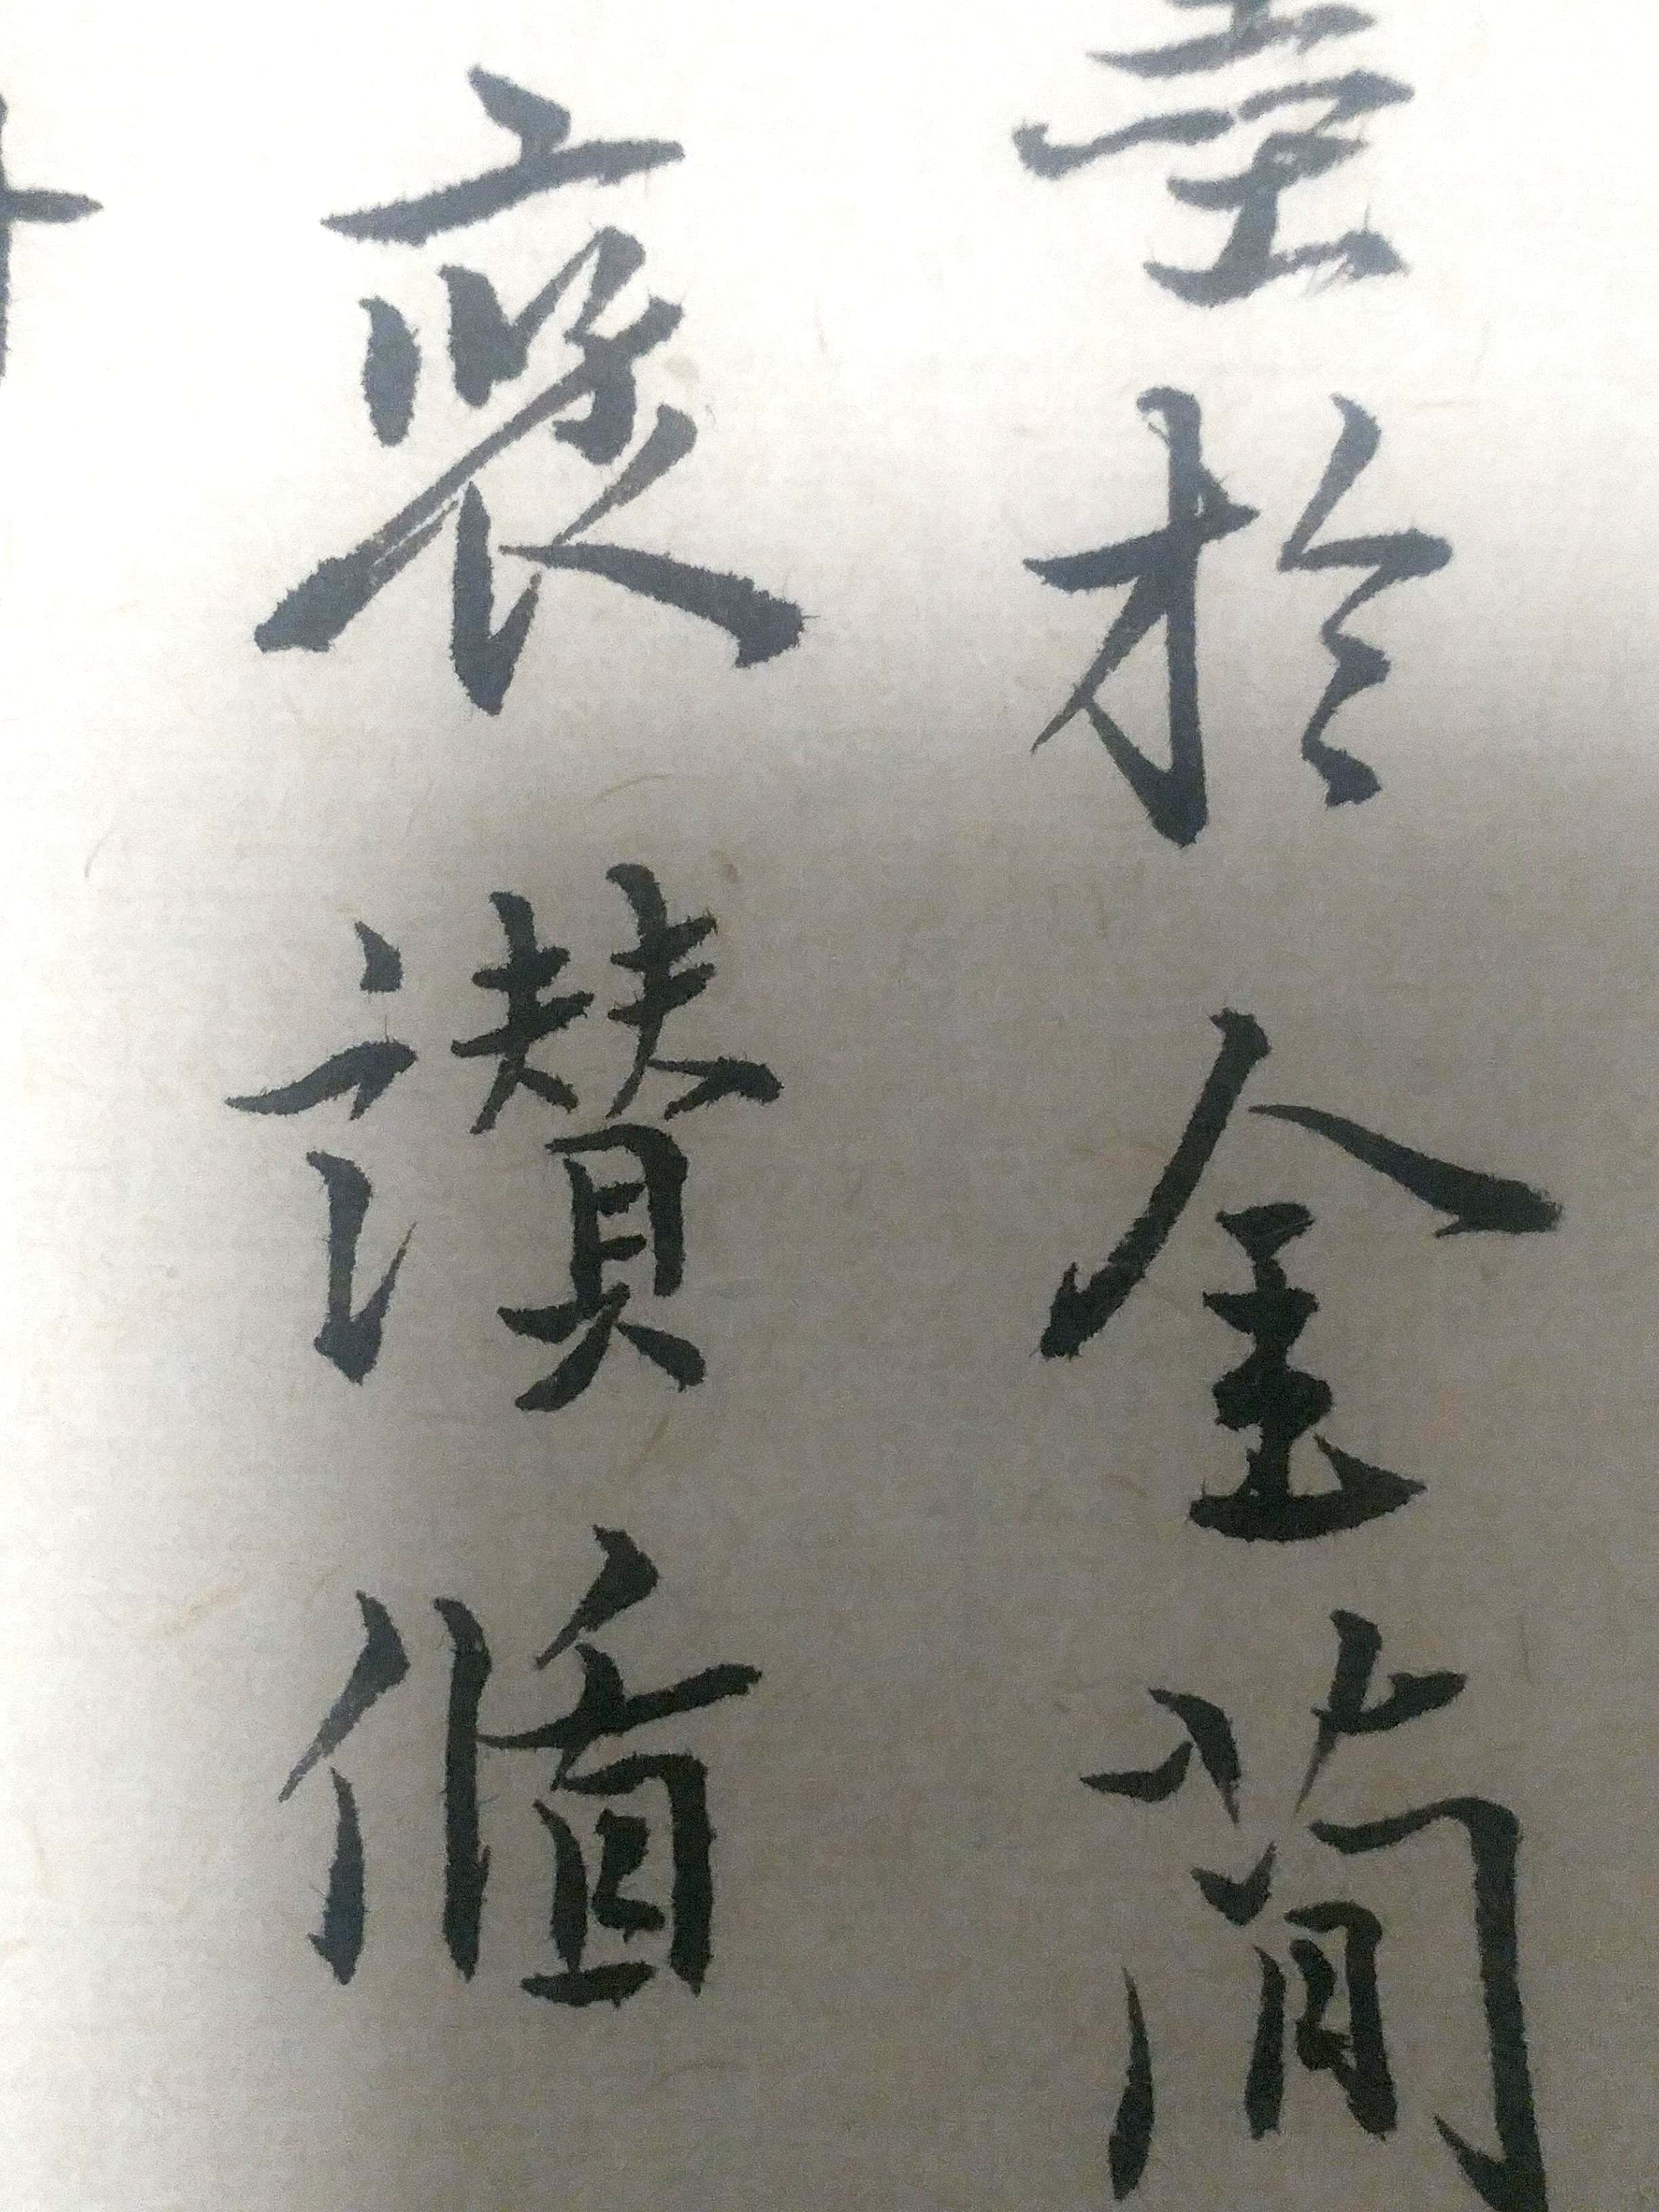 墨於金簡
褒讚循